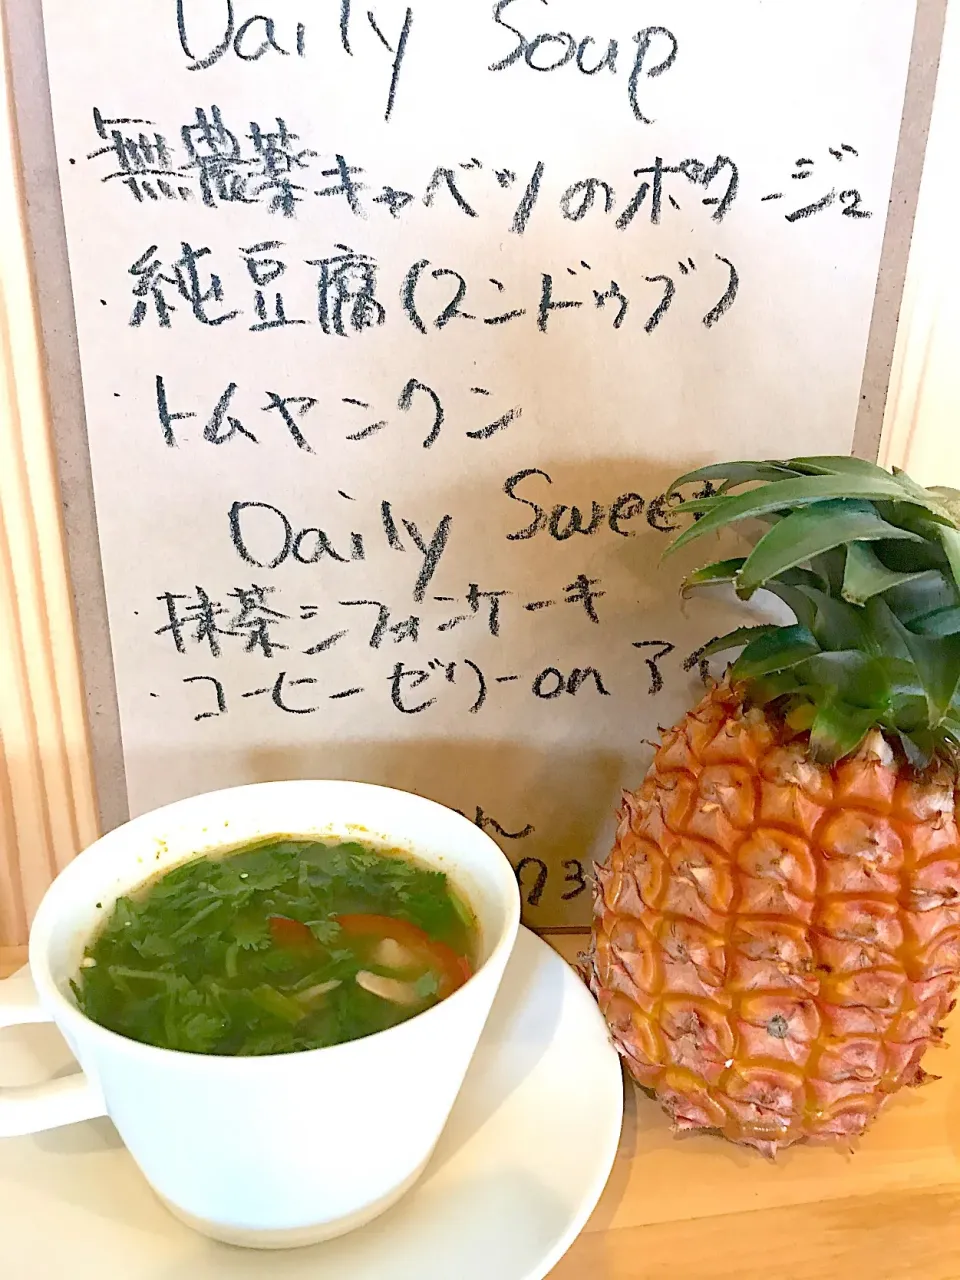 Daily Soup
・無農薬キャベツのポタージュ
・純豆腐(スンドゥブ)
・トムヤンクン
Daily Sweet
・抹茶シフォンケーキ
・コーヒーゼリーonアイ